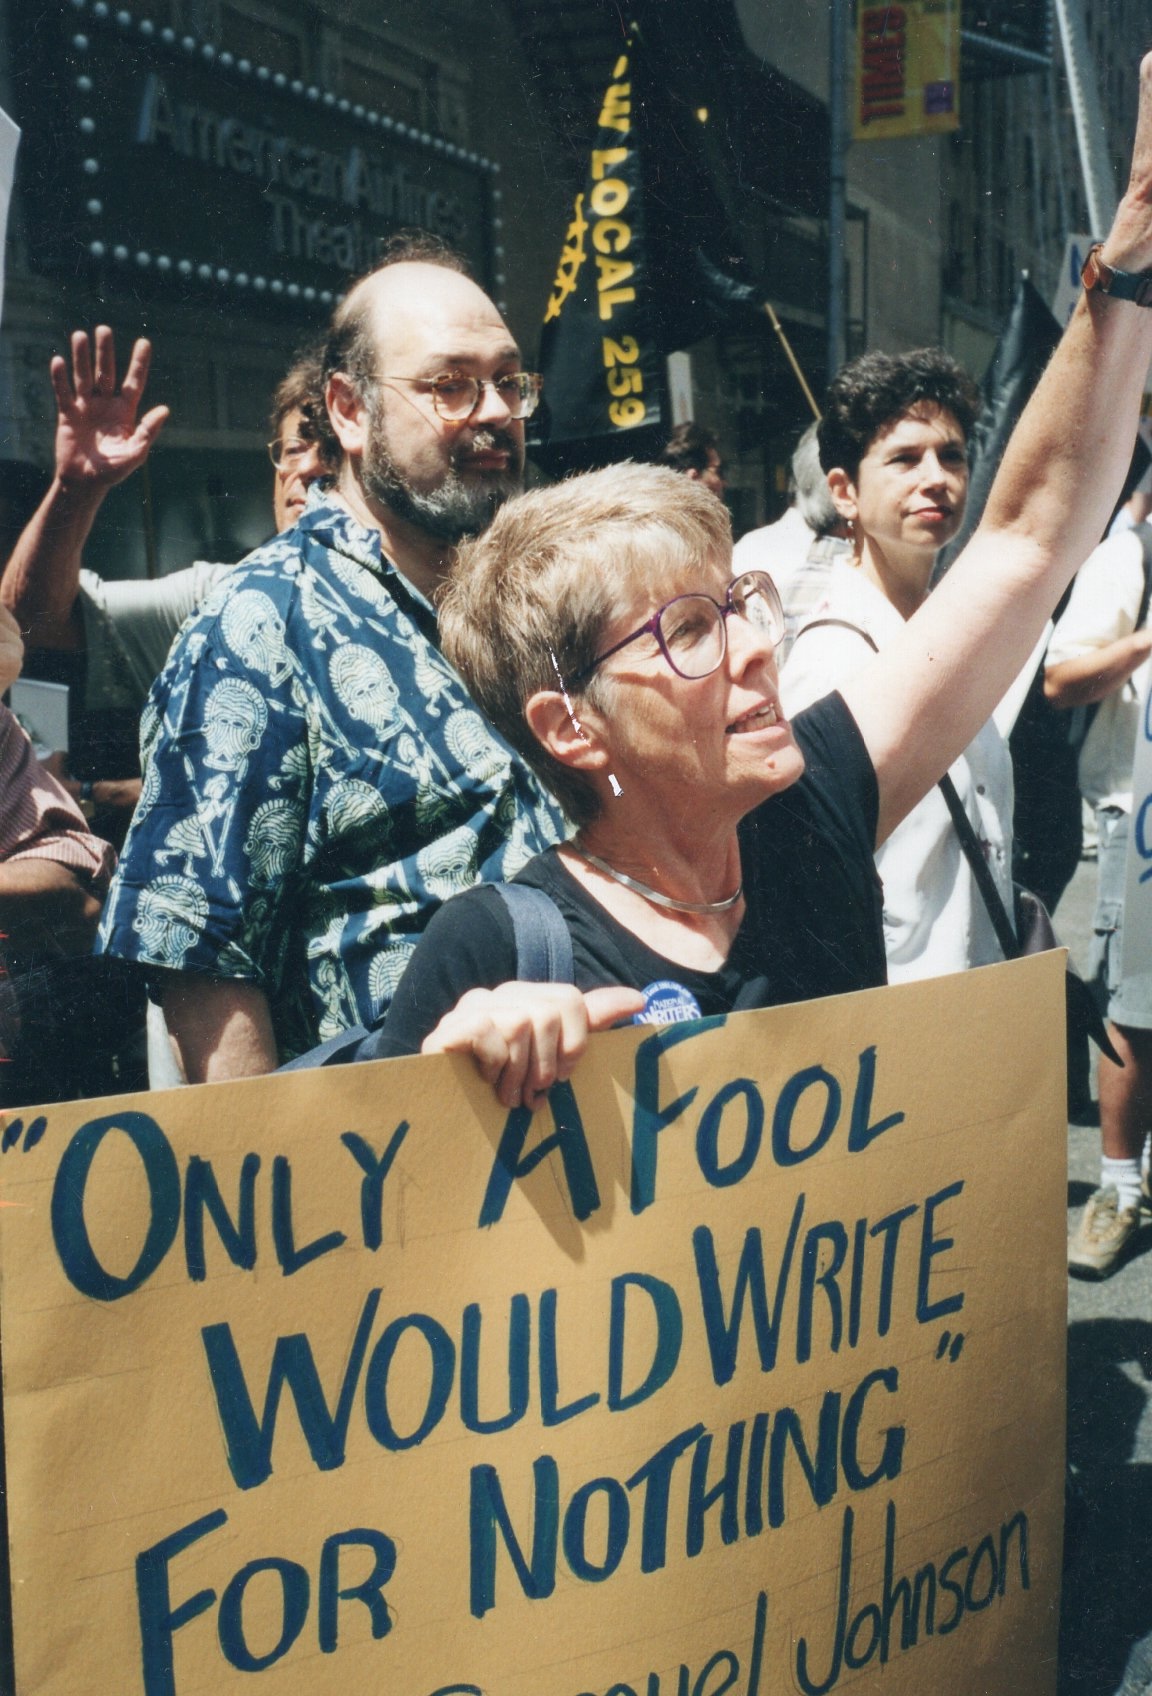 American Airlines
Theatre
W LOCAL 259
TIMES
NATIONAL
WRITERS
"ONLY A FOOL
WOULD WRITE
FOR NOTHING"
Samuel Johnson